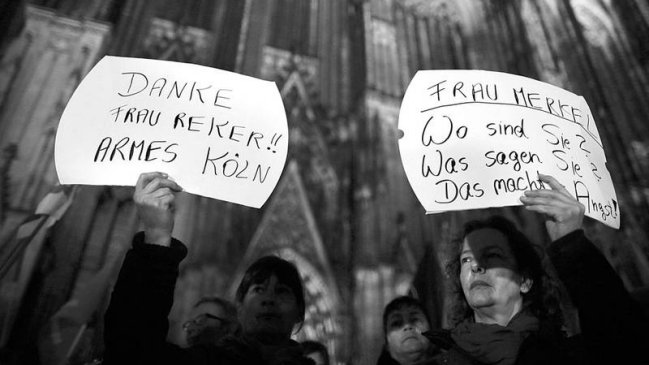 DANKE
FRAU REKER!!
ARMES KÖLN
FRAU MERKEL!
Wo sind Sie?
Was sagen Sie?
Das macht Angst!